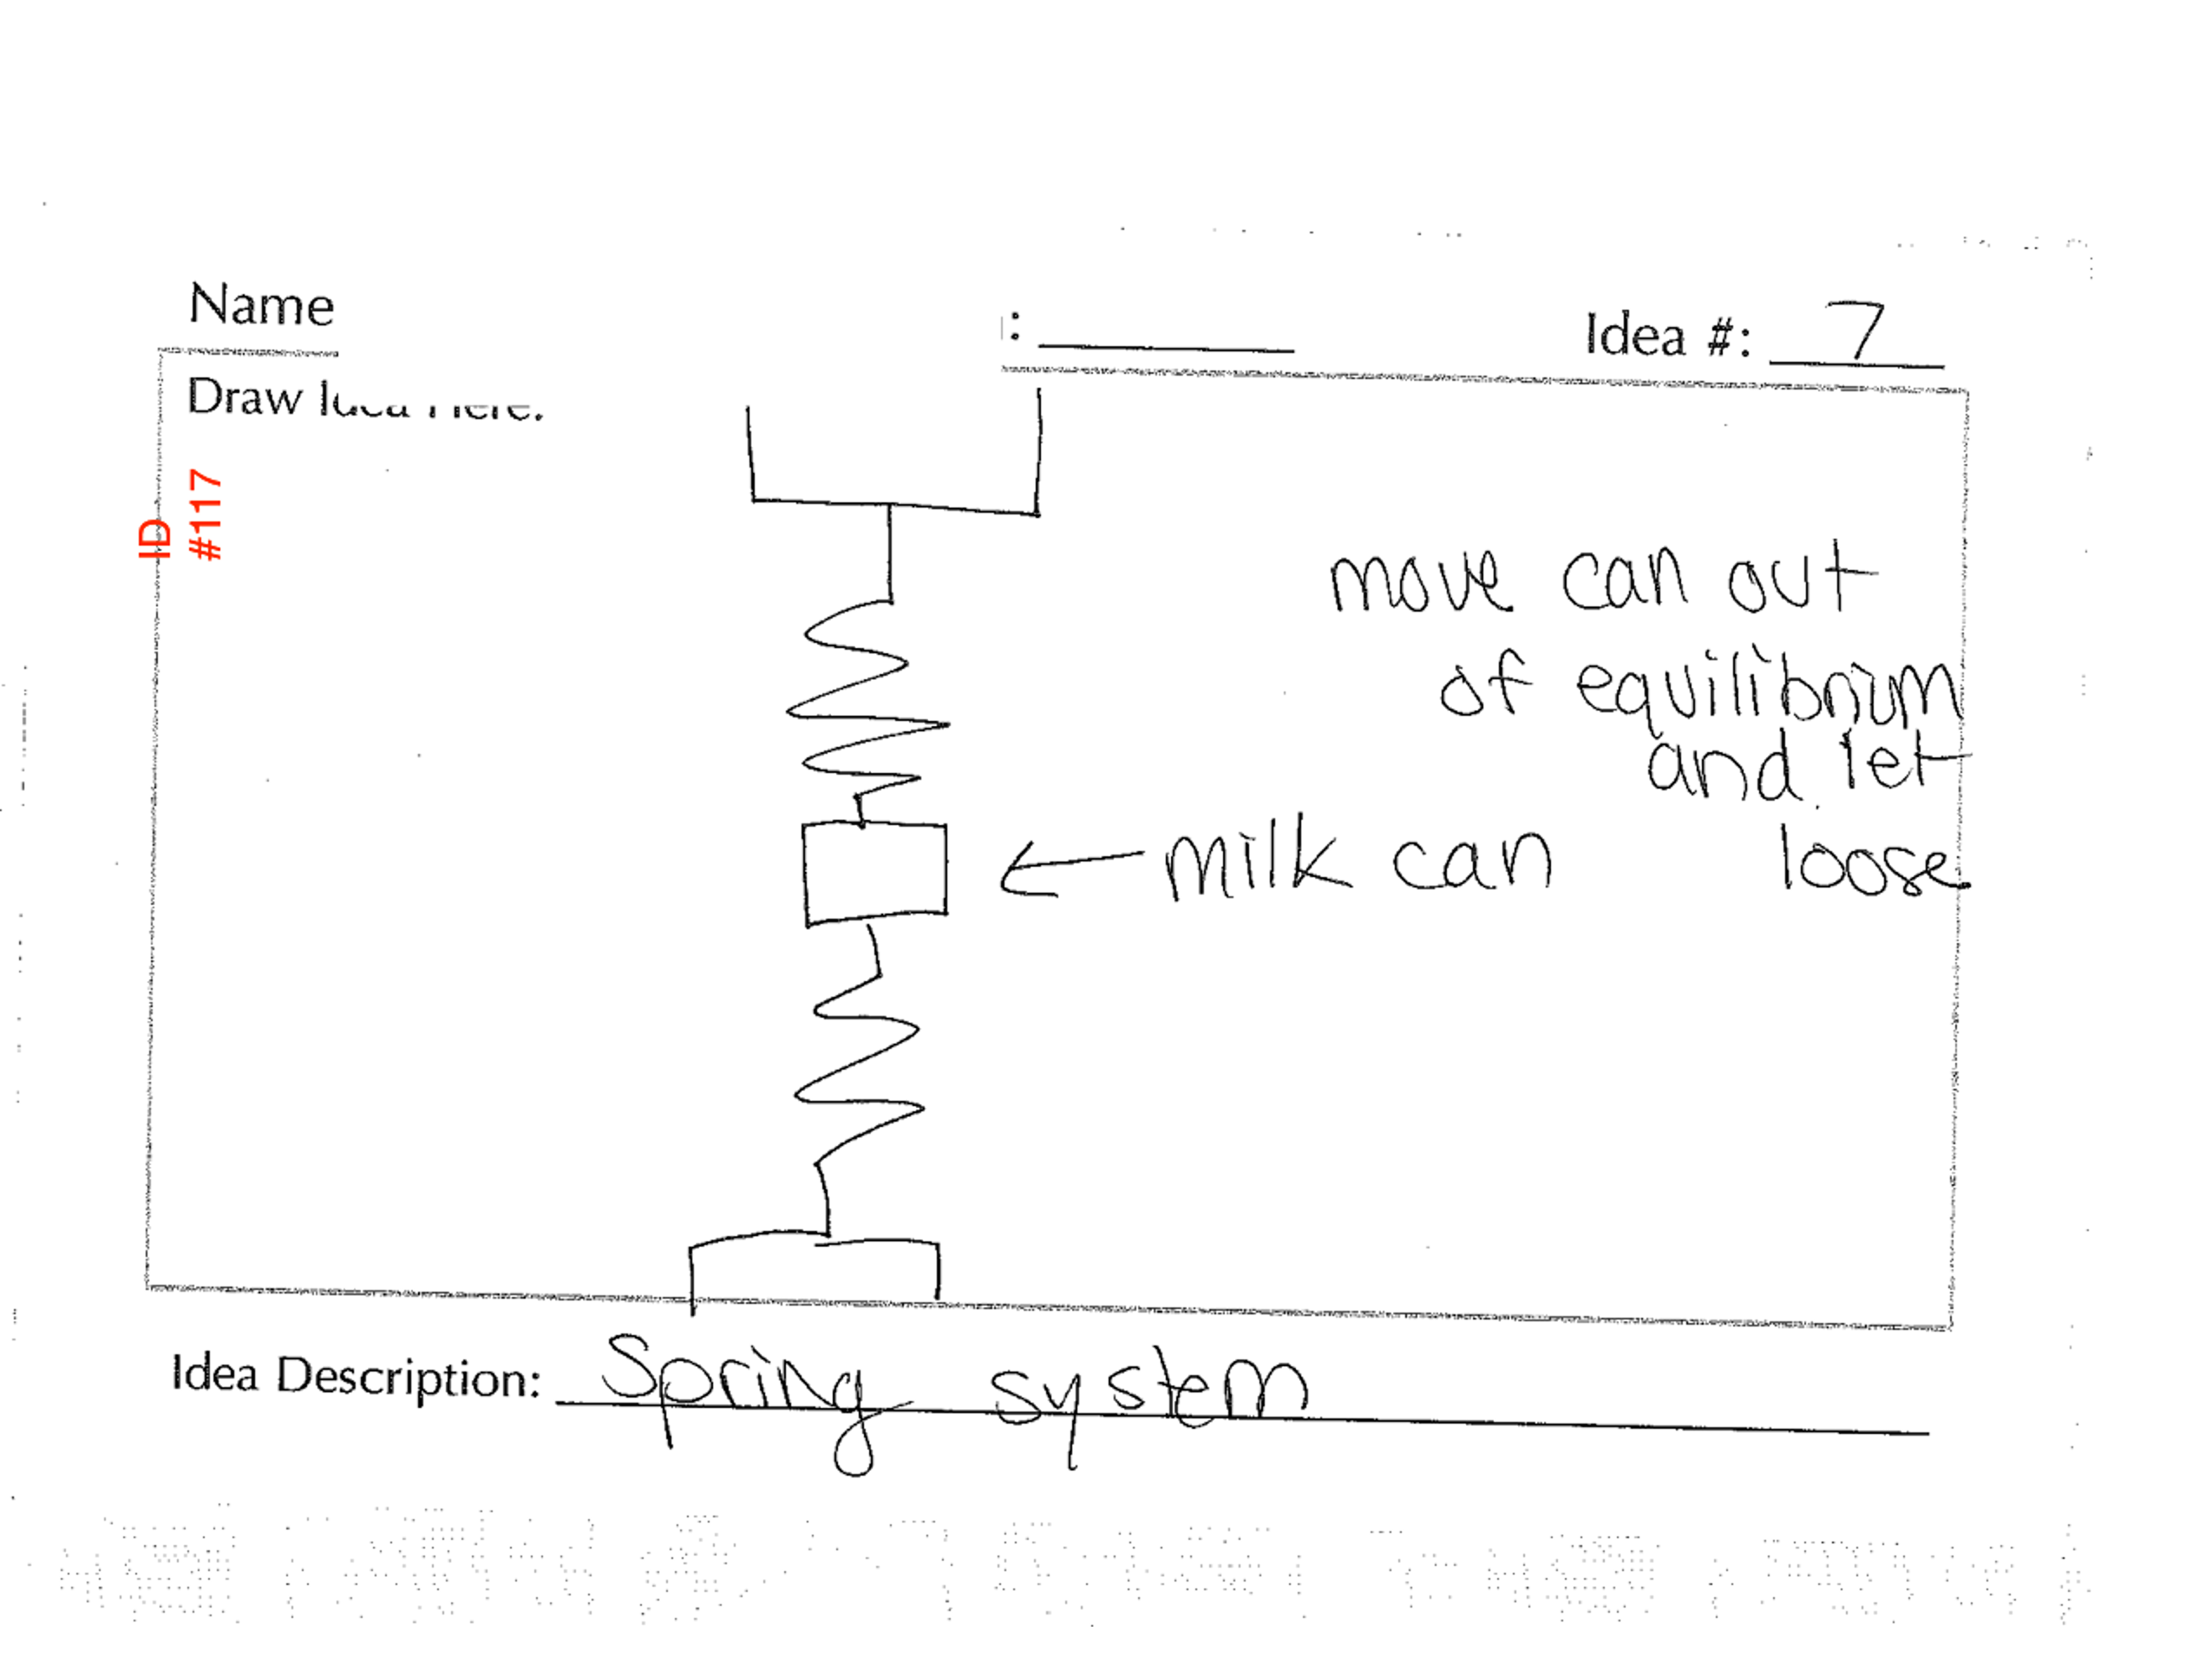 Name
: Idea #: 7
Draw
ID
#117
move can out
of equilibrium
and let
loose
milk can
Idea Description: Spring system